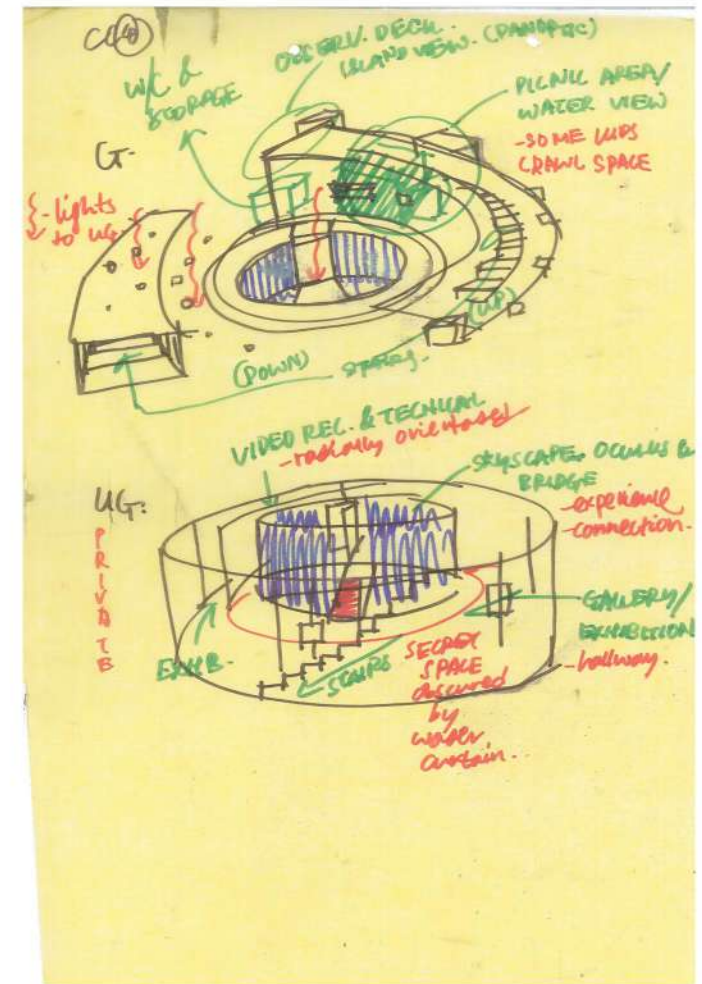 OBSERV. DECK.
ISLAND VIEW. (PANOPTIC)
W/C &
STORAGE
PICNIC AREA/
WATER VIEW
-SOME KIDS
CRAWL SPACE
G-
- lights
to UG
(UP)
(DOWN)
VIDEO REC. & TECHNICAL
-radially orientated
SKYSCAPE, OCULUS &
BRIDGE
-experience
-connection.
UG:
PRIVATE
GALLERY/
EXHIBITION
-hallway.
EXHIB.
STAIRS
SECRET
SPACE
obscured
by
water
curtain.